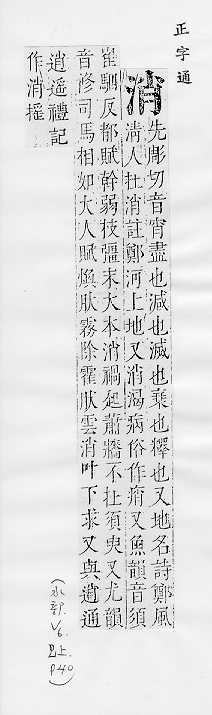 正字通
消
先彫切音宵盡也減也滅也衰也釋也又地名詩鄭風
清人在消註鄭河上地又消渴病俗作痟又魚韻音須
崔駰反都賦幹弱枝彊末大本消禍起蕭牆不在須臾又尤韻
音修司馬相如大人賦煥肰霧除霍肰雲消叶下求又與逍通
逍遥禮記
作消摇
(水部
V6.
巳上.
P40)